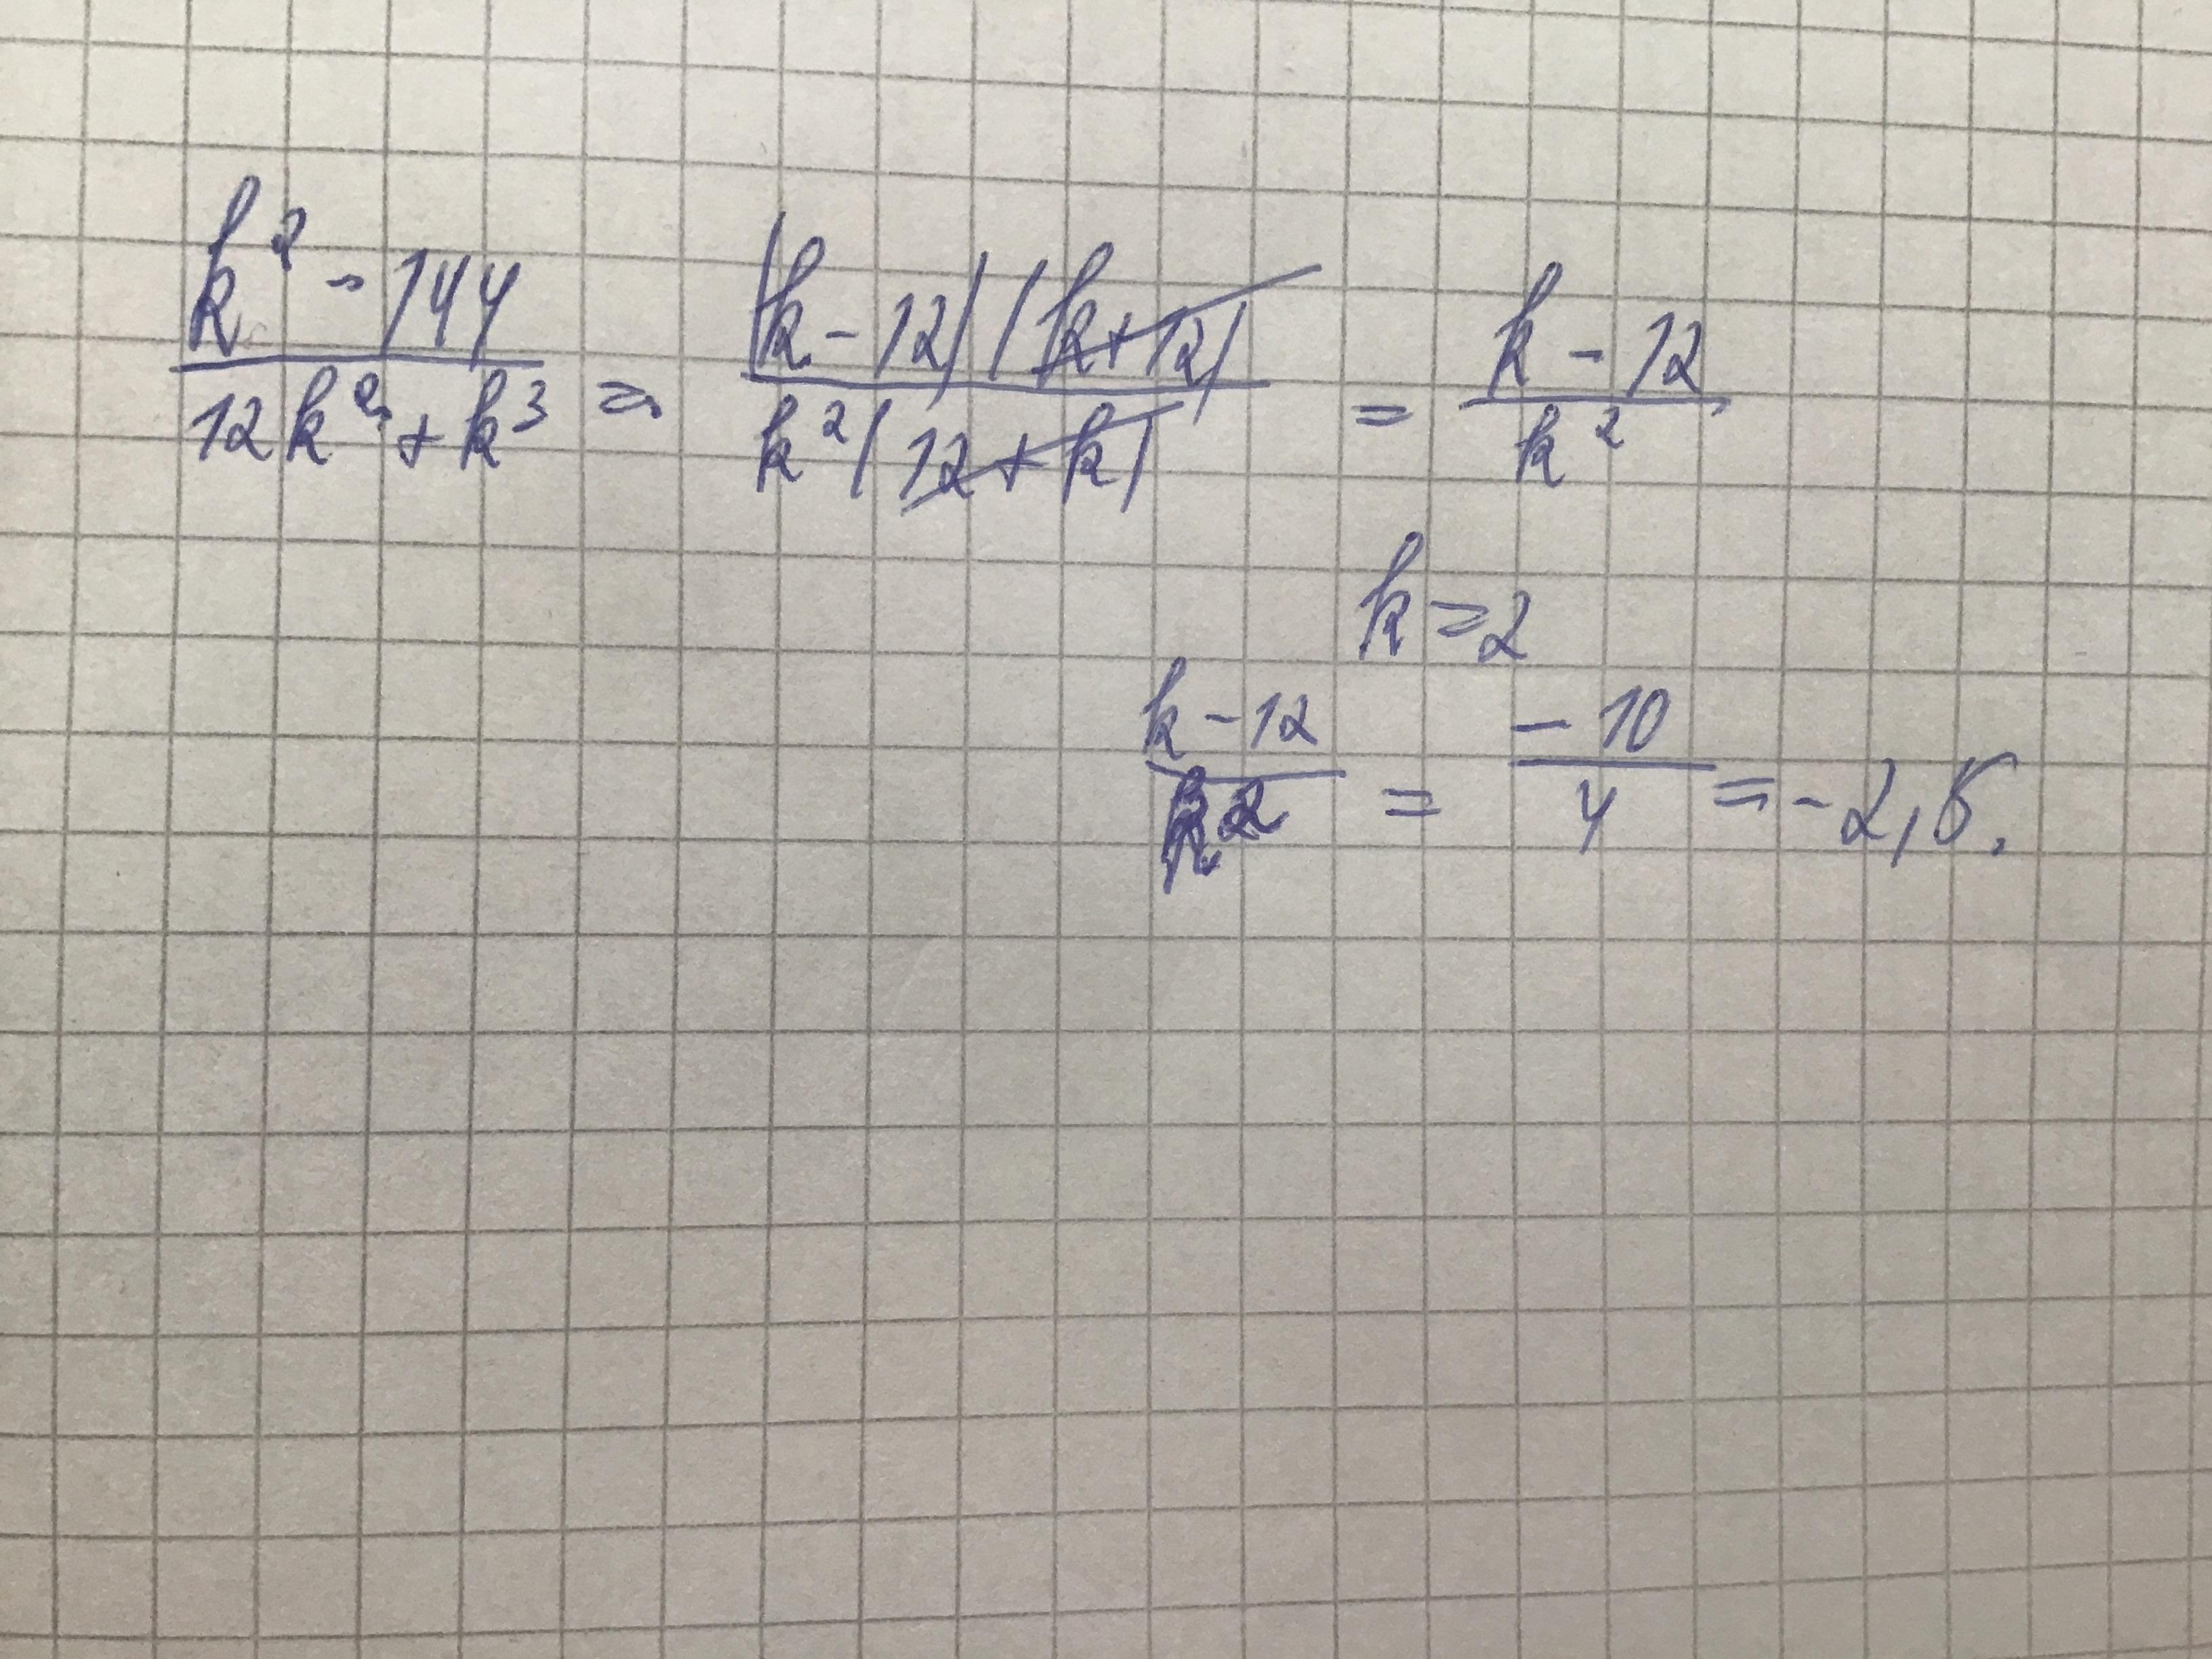 k² - 144 / 12k² + k³ = (k - 12)(k + 12) / k²(12 + k) = k - 12 / k²
k = 2
k - 12 / k² = -10 / 4 = -2,5.